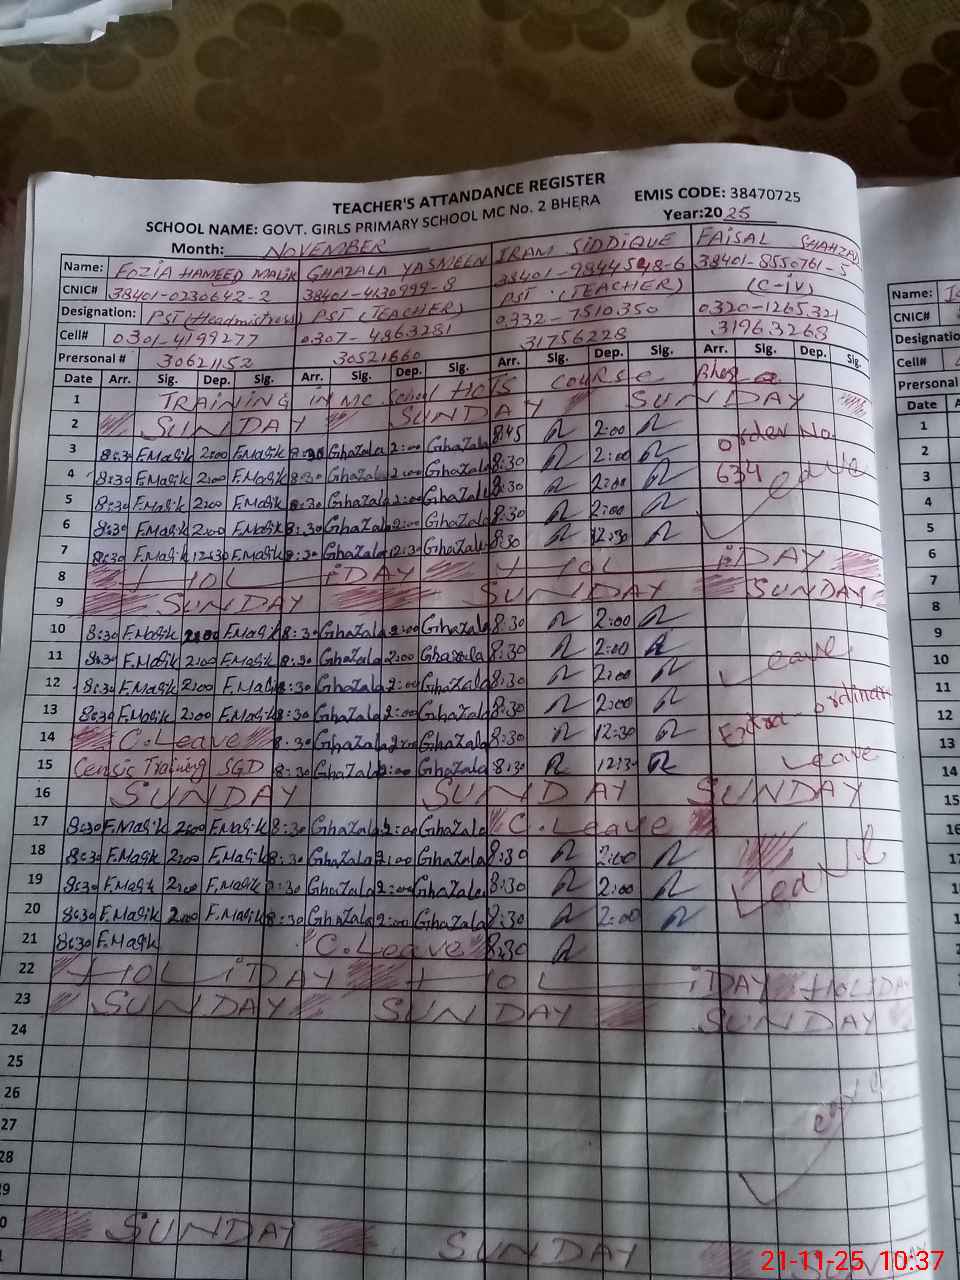 TEACHER'S ATTANDANCE REGISTER
SCHOOL NAME: GOVT. GIRLS PRIMARY SCHOOL MC No. 2 BHERA EMIS CODE: 38470725
Month: NOVEMBER Year:2025
Name: FOZIA HAMEED MALIK GHAZALA YASMEEN IRAM SIDDIQUE FAISAL SHAHZAD
CNIC# 38401-0230642-2 38401-4130999-8 38401-9844548-6 38401-8550761-5
Designation: PST (Headmistress) PST (TEACHER) PST (TEACHER) (C-iv)
Cell# 0301-4199277 0307-4863281 0332-7510350 0320-1265321
Prersonal # 30621152 30521660 31756228 31963268
Date Arr. Sig. Dep. Sig. Arr. Sig. Dep. Sig. Arr. Sig. Dep. Sig. Arr. Sig. Dep. Sig.
1 TRAINING IN MC School HOTS COURSE
2 SUNDAY SUNDAY SUNDAY
3 8:30 F.Malik 2:00 F.Malik 8:30 Ghazala 2:00 Ghazala 8:45 2:00 Order No.
4 8:30 F.Malik 2:00 F.Malik 8:30 Ghazala 2:00 Ghazala 8:30 2:00 634 Leave
5 8:30 F.Malik 2:00 F.Malik 8:30 Ghazala 2:00 Ghazala 8:30 2:00
6 8:30 F.Malik 2:00 F.Malik 8:30 Ghazala 2:00 Ghazala 8:30 2:00
7 8:30 F.Malik 12:30 F.Malik 8:30 Ghazala 12:30 Ghazala 8:30 12:30
8 HOLiDAY HOLiDAY
9 SUNDAY SUNDAY SUNDAY
10 8:30 F.Malik 2:00 F.Malik 8:30 Ghazala 2:00 Ghazala 8:30 2:00
11 8:30 F.Malik 2:00 F.Malik 8:30 Ghazala 2:00 Ghazala 8:30 2:00 Leave
12 8:30 F.Malik 2:00 F.Malik 8:30 Ghazala 2:00 Ghazala 8:30 2:00
13 8:30 F.Malik 2:00 F.Malik 8:30 Ghazala 2:00 Ghazala 8:30 2:00 Extra ordinary
14 C.Leave 8:30 Ghazala 2:00 Ghazala 8:30 12:30 Leave
15 Training SGD 8:30 Ghazala 2:00 Ghazala 8:30 12:30
16 SUNDAY SUNDAY SUNDAY
17 8:30 F.Malik 2:00 F.Malik 8:30 Ghazala 2:00 Ghazala C.Leave
18 8:30 F.Malik 2:00 F.Malik 8:30 Ghazala 2:00 Ghazala 8:30 2:00
19 8:30 F.Malik 2:00 F.Malik 8:30 Ghazala 2:00 Ghazala 8:30 2:00 Leave
20 8:30 F.Malik 2:00 F.Malik 8:30 Ghazala 2:00 Ghazala 8:30 2:00
21 8:30 F.Malik C.Leave 8:30
22 HOLiDAY HOLiDAY HOLIDAY
23 SUNDAY SUNDAY SUNDAY
24
25
26
27
28
SUNDAY SUNDAY
Name:
CNIC#
Designation
Cell#
Personal
Date
1
2
3
4
5
6
7
8
9
10
11
12
13
14
15
16
21-11-25 10:37